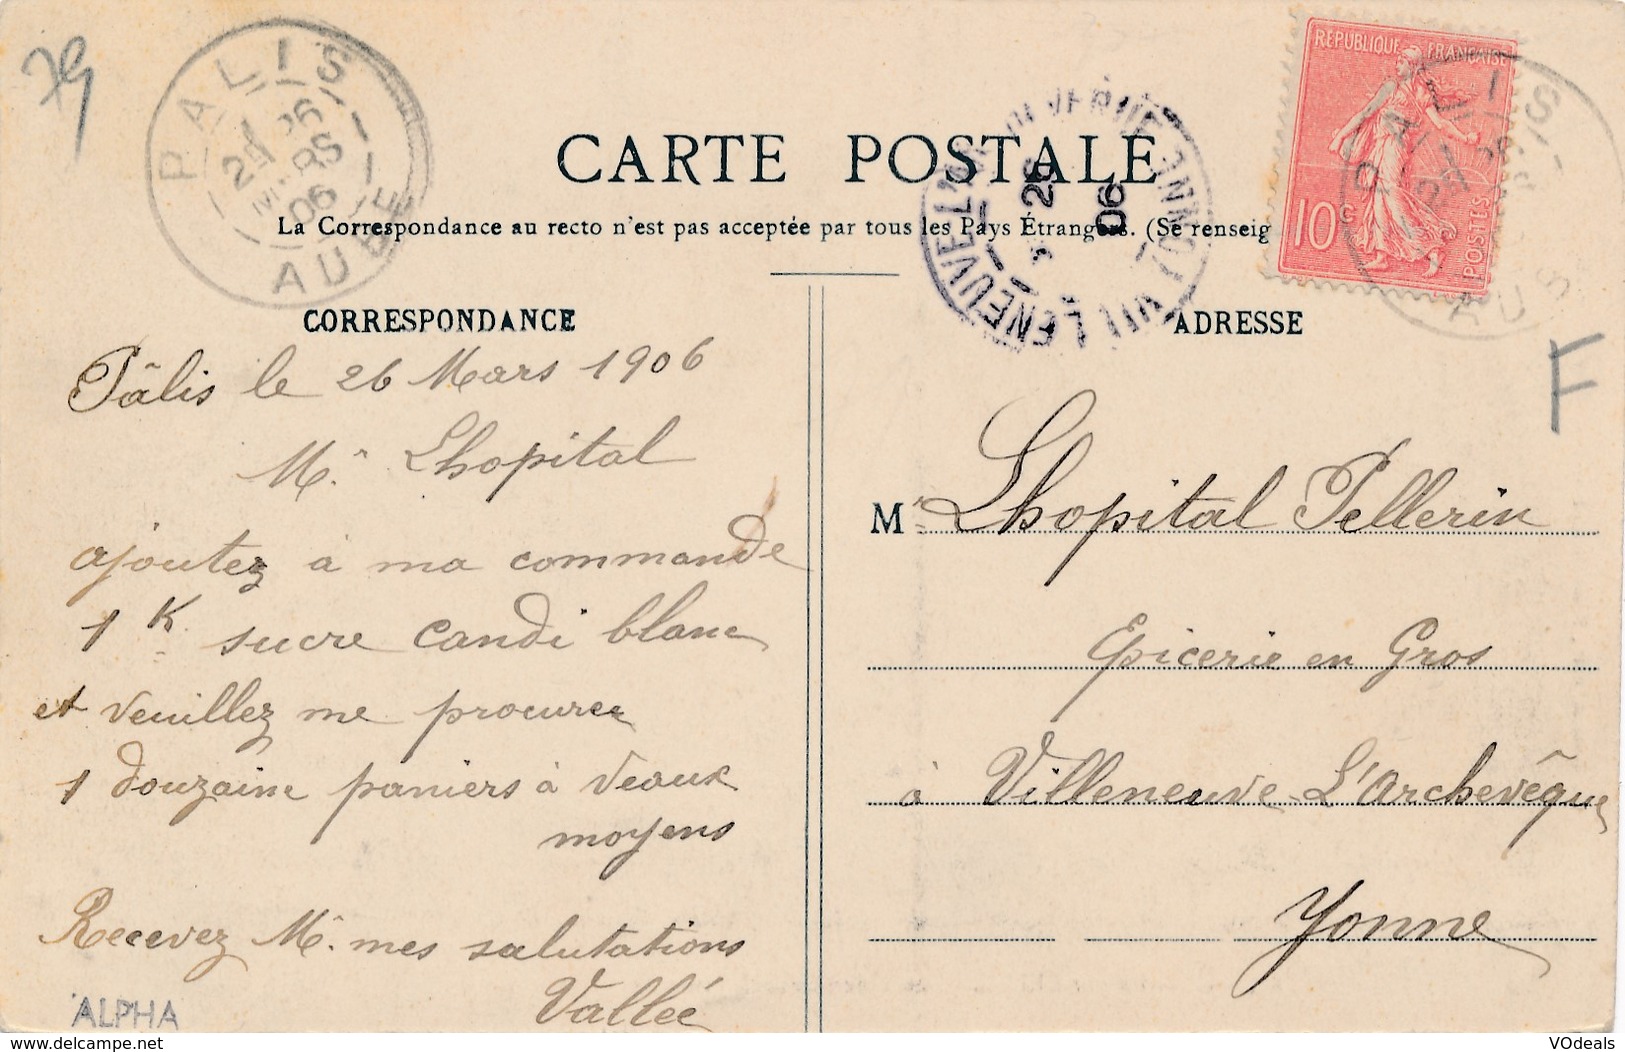 79
PALIS
26
MARS
06
AUBE
CARTE POSTALE
La Correspondance au recto n'est pas acceptée par tous les Pays Étrangers. (Se renseig
REPUBLIQUE FRANÇAISE
10c
POSTES
VILLENEUVE
YONNE
26
06
CORRESPONDANCE
Pâlis le 26 Mars 1906
Mr. Lhopital
ajoutez à ma commande
1 K. sucre candi blanc
et veuillez me procurer
1 douzaine paniers à veaux
moyens
Recevez Mr. mes salutations
Vallée
ALPHA
ADRESSE
F
Mr Lhopital Pellerin
Epicerie en Gros
à Villeneuve-L'Archevêque
Yonne
delcampe.net
VOdeals